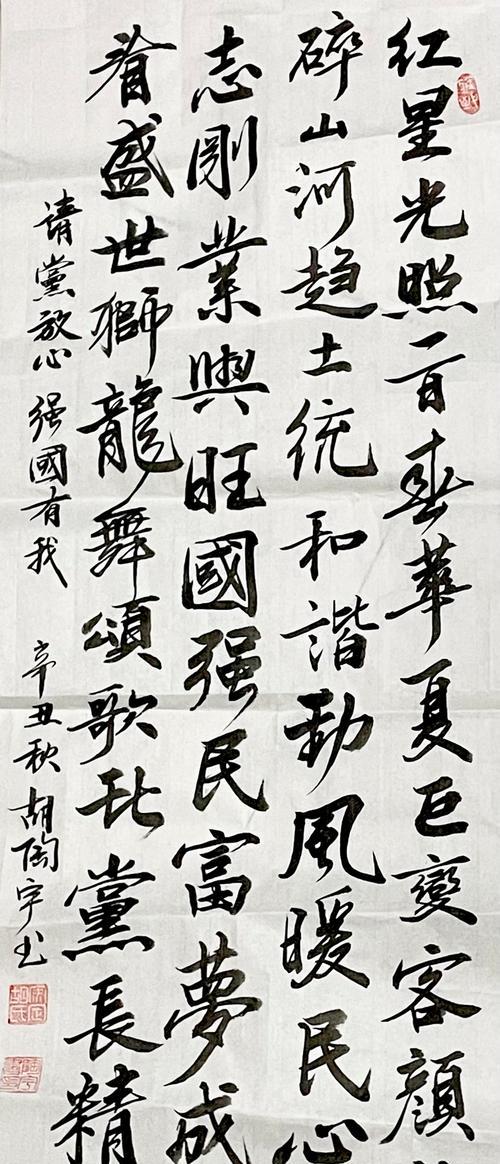 红星光照一百春華夏巨變容顔
碎山河趋土统和諧勁風暖民心
志剛業興旺國强民富夢成
盛世獅龍舞頌歌黨長精
請黨放心 强國有我 辛丑秋 胡陶宇书